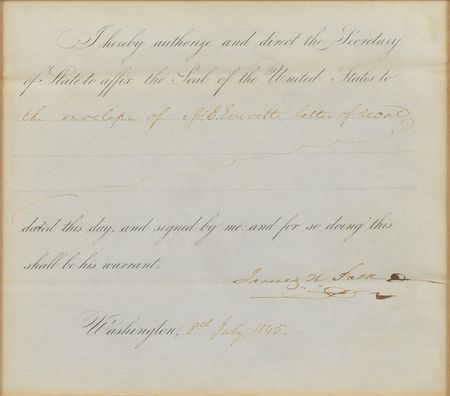 I hereby authorize and direct the Secretary
of State to affix the Seal of the United States to
the envelope of Mr. E. Everett's letter of recal,
dated this day, and signed by me: and for so doing this
shall be his warrant.
James K. Polk
Washington, 8th July, 1845.